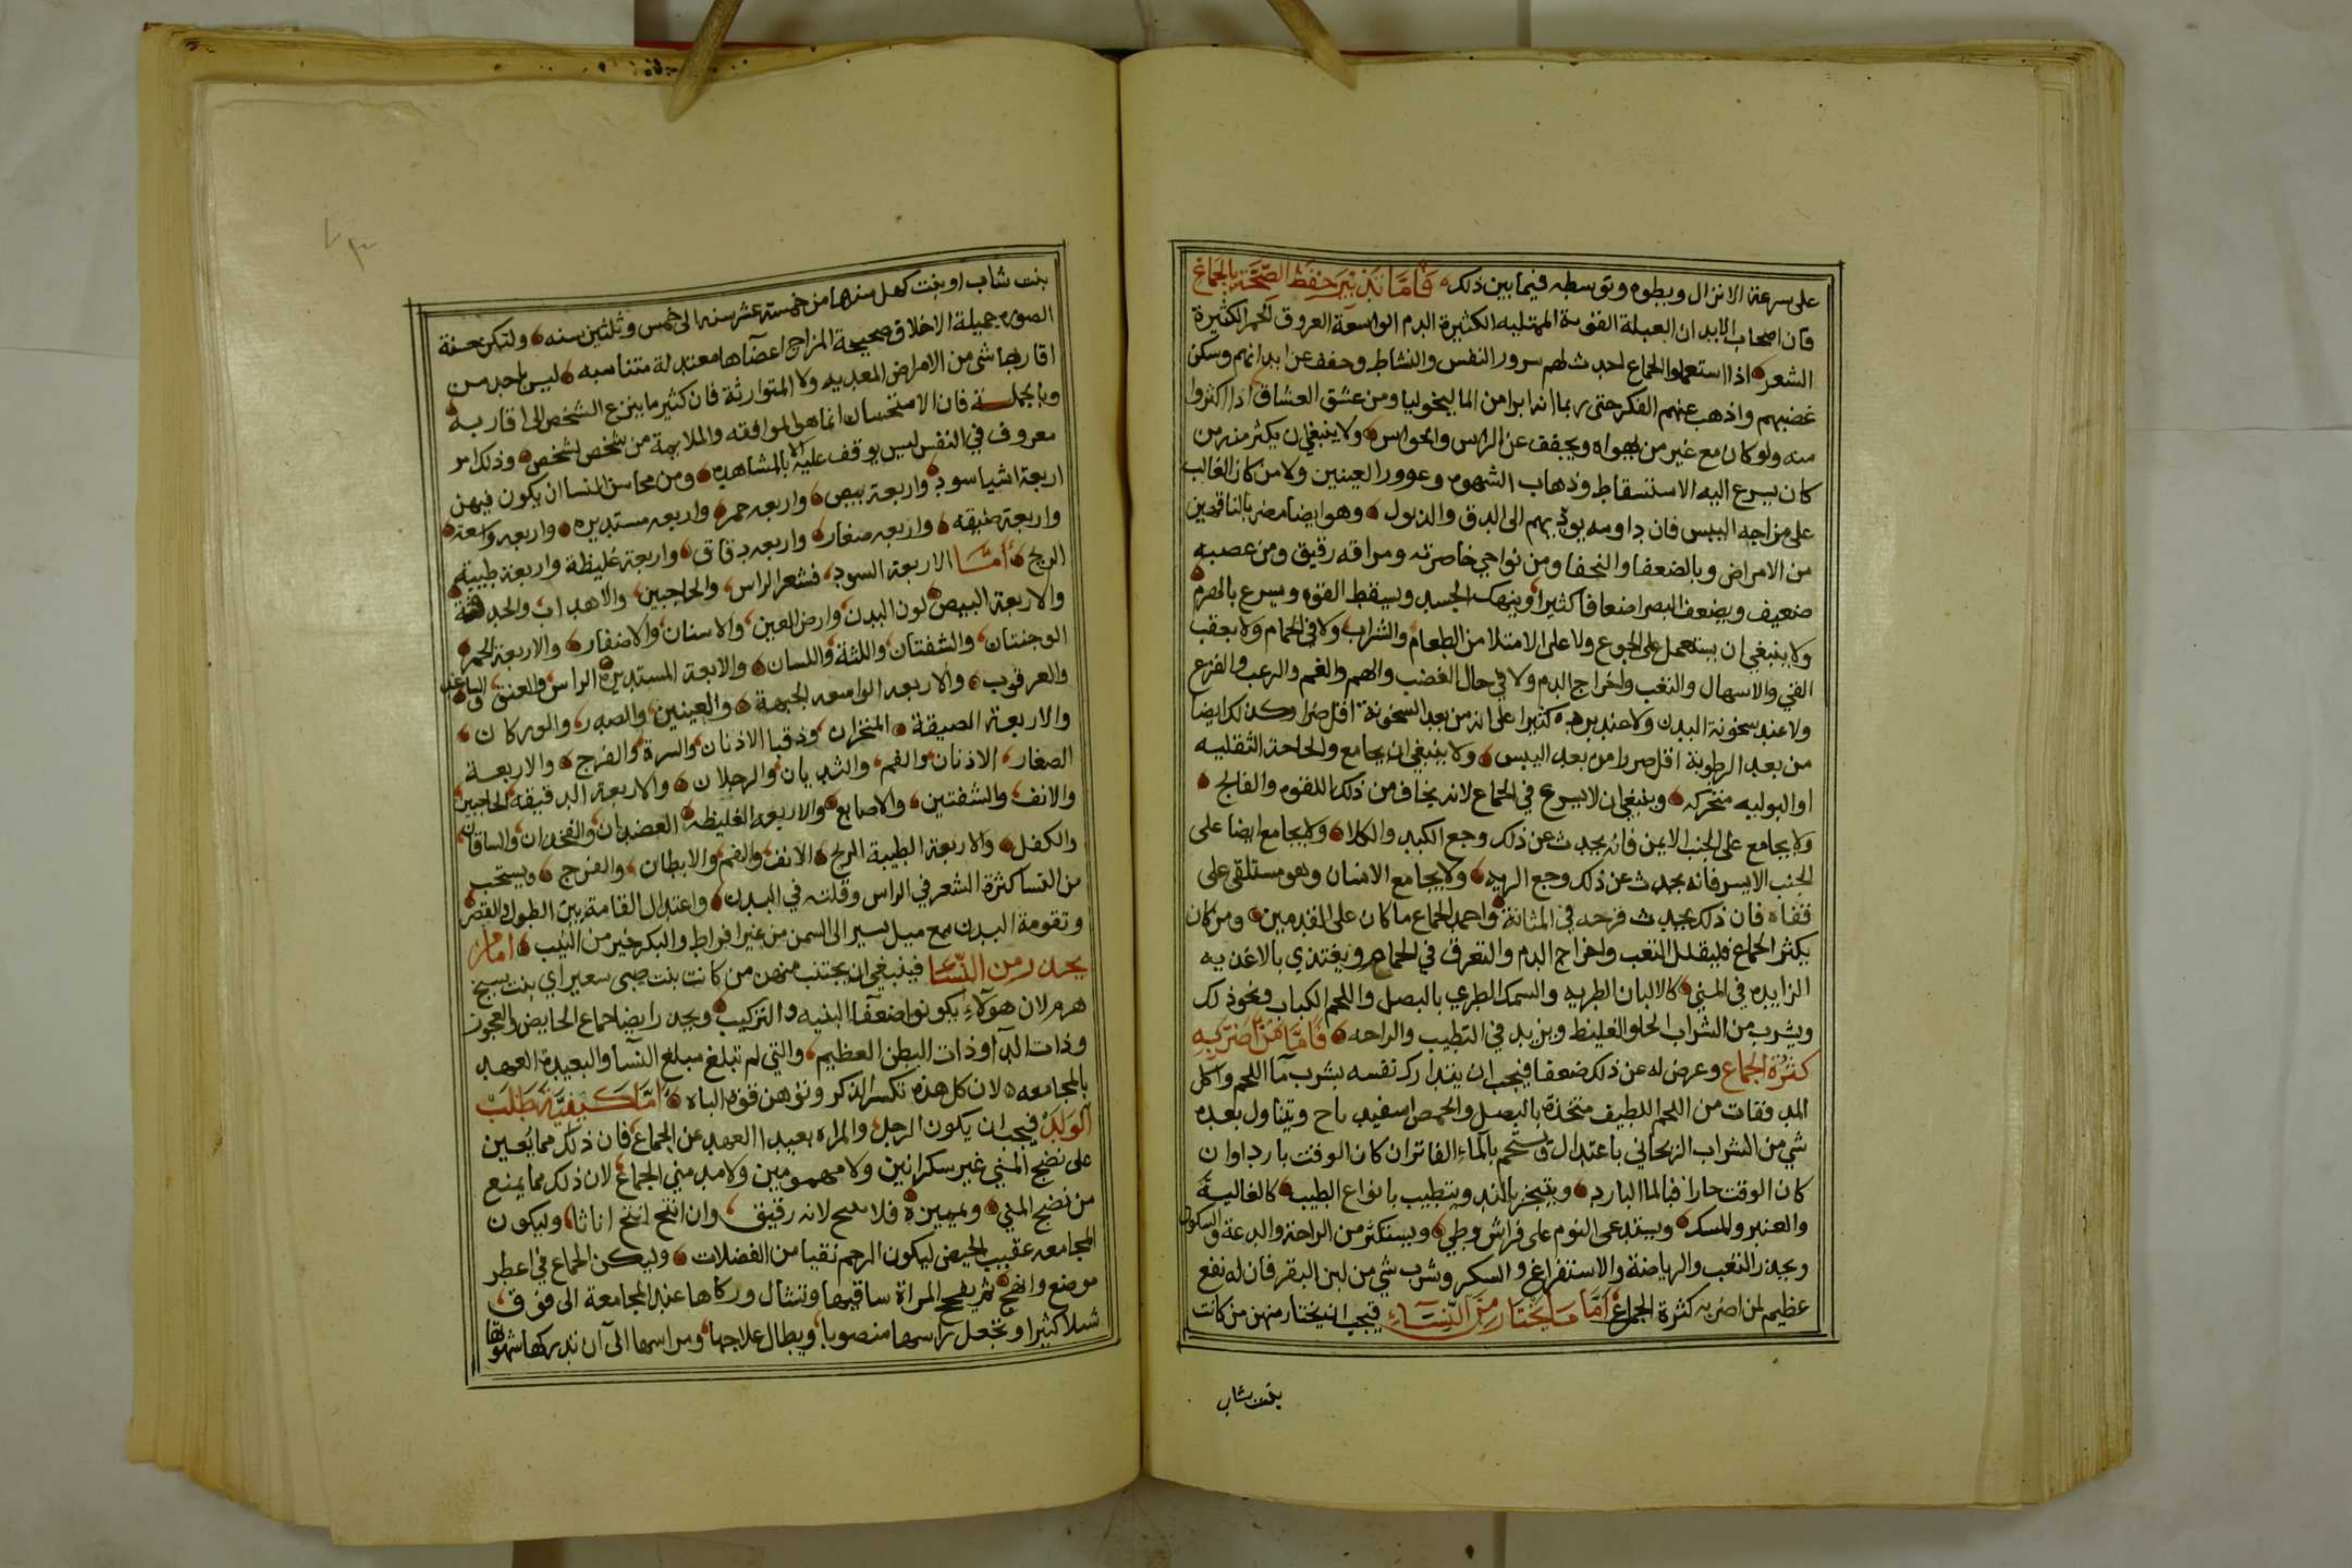 على سرعة الانزال وبطوه وتوسطه فيما بين ذلك فأما تدبير حفظ الصحة بالجماع
فان اصحاب الابدان العبلة القوية الممتليه الكثيرة الدم الواسعة العروق لحمر الكثيرة
الشعر اذا استعملوا الجماع لحدث لهم سرور النفس والنشاط وخفف عن ابدانهم وسكن
غضبهم واذهب عنهم الفكر حتى ربما انه ابرا من الماليخوليا ومن عشق العشاق اذا اكثروا
منه ولو كان مع غير من يهواه ويجفف عن الراس والحواس ولا ينبغي ان يكثر منه من
كان يسرع اليه الاستسقاط وذهاب الشهوه وغوور العينين ولا من كان الغالب
على مزاجه اليبس فان داومه يودي بهم الى الدق والذبول وهو ايضا مضر بالناقهين
من الامراض وبالضعفا والنحفا ومن نواحي خاصرته ومراقه رقيق ومن عصبه
ضعيف ويضعف البصر اضعافا كثيرا وينهك الجسد ويسقط القوه ويسرع بالهرم
ولا ينبغي ان يستعمل على الجوع ولا على الامتلا من الطعام والشراب ولا في الحمام ولا بعقب
القي والاسهال والتعب واخراج الدم ولا في حال الغضب والهم والغم والرعب والفزع
ولا عند سخونة البدن ولا عند برده كثيرا على انه من بعد السخونة اقل ضررا وكذلك ايضا
من بعد الرطوبة اقل ضررا من بعد اليبس ولا ينبغي ان يجامع والحاحة الثقليه
او البوليه متحركه وينبغي ان لا يسرع في الجماع لانه يخاف من ذلك اللقوه والفالج
ولا يجامع على الجنب الايمن فانه يحدث عن ذلك وجع الكبد والكلا ولا يجامع ايضا على
الجنب الايسر فانه يحدث عن ذلك وجع الريه ولا يجامع الانسان وهو مستلقى على
قفاه فان ذلك يحدث قرحه في المثانة واحمد الجماع ما كان على القدمين ومن كان
يكثر الجماع فليقلل التعب واخراج الدم والتعرق في الحمام ويغتذي بالاغذيه
الزايده في المني كالالبان الطريه والسمك الطري بالبصل واللحم الكباب ونحو ذلك
ويشرب من الشراب الحلو الغليظ ويزيد في التطيب والراحه فأما من اضر به
كثرة الجماع وعرض له عن ذلك ضعفا فيجب ان يتدارك نفسه بشرب ماء اللحم واكل
المدققات من اللحم اللطيف متخذة بالبصل والحمص اسفيدباح ويتناول بعده
شي من الشراب الريحاني باعتدال ويستحم بالماء الفاتر ان كان الوقت باردا وان
كان الوقت حارا فبالما البارد ويتبخر بالند ويتطيب بانواع الطيب كالغالية
والعنبر والمسك ويستدعى النوم على فراش وطي ويستكثر من الراحة والدعة والسكون
ويحذر التعب والرياضة والاستفراغ والسكر وشرب شي من لبن البقر فان له نفع
عظيم لمن اضر به كثرة الجماع أما ما يختار من النساء فيجب ان يختار منهن من كانت
بنت شاب
بنت شاب او بنت كهل سنها من خمسة عشر سنه الى خمس وثلثين سنه ولتكن حسنة
الصوره جميلة الاخلاق صحيحة المزاج اعضآها معتدلة متناسبه ليس باحد من
اقاربها شي من الامراض المعديه ولا المتوارثة فان كثير ما ينزع الشخص الى اقاربه
وبالجملة فان الاستحسان انما هو الموافقه والملايمة من شخص لشخص وذلك امر
معروف في النفس ليس يوقف عليه الا بالمشاهده ومن محاسن النسا ان يكون فيهن
اربعة اشيا سود واربعة بيض واربعه حمر واربعه مستديره واربعه واسعة
واربعة ضيقه واربعه صغار واربعه دقاق واربعة غليظة واربعة طيبة
الريح أما الاربعة السود فشعر الراس والحاجبين والاهداب والحدقة
والاربعة البيض لون البدن وارض العين والاسنان والاضفار والاربعة الحمر
الوجنتان والشفتان واللثة واللسان والاربعة المستديرة الراس والعنق والساعد
والعرقوب والاربعه الواسعه الجبهة والعينين والصدر والوركان
والاربعة الضيقة المنخران وذقبا الاذنان والسرة والفرج والاربعة
الصغار الاذنان والفم والثديان والرجلان والاربعة الدقيقه الحاجبين
والانف والشفتين والاصابع والاربعه الغليظه العضدان والفخدان والساقان
والكفل والاربعة الطيبة الريح الانف والفم والابطان والفرج ويستحب
من النسا كثرة الشعر في الراس وقلته في البدن واعتدال القامة بين الطول والقصر
وتقومة البدن مع ميل يسير الى السمن من غير افراط والبكر خير من الثيب اما من
يحذر من النساء فينبغي ان يجتنب منهن من كانت بنت صبى صغير اي بنت شيخ
هرم لان هولاء يكونوا ضعفا البنيه والتركيب ويحذر ايضا جماع الحايض والعجوز
وذات الدآ وذات البطن العظيم والتي لم تبلغ مبلغ النسآ والبعيدة العهد
بالمجامعه لان كل هذه تكسر الذكر وتوهن قوة الباه أما كيفية طلب
الولد فيجب ان يكون الرجل والمراه بعيدا العهد عن الجماع فان ذلك مما يعين
على نضج المني غير سكرانين ولا مهمومين ولا مدمني الجماع لان ذلك مما يمنع
من نضج المني فلا لانه رقيق وان انتج انتج اناثا وليكون
المجامعه عقيب الحيض ليكون الرحم نقيا من الفضلات وليكن الجماع في اعطر
موضع وابهج ثم يفحج المراة ساقيها وتشال وركاها عند المجامعة الى فوق
شيلا كثيرا وتجعل راسها منصوبا ويطال علاجها ومراسها الى ان تدركها شهوتها